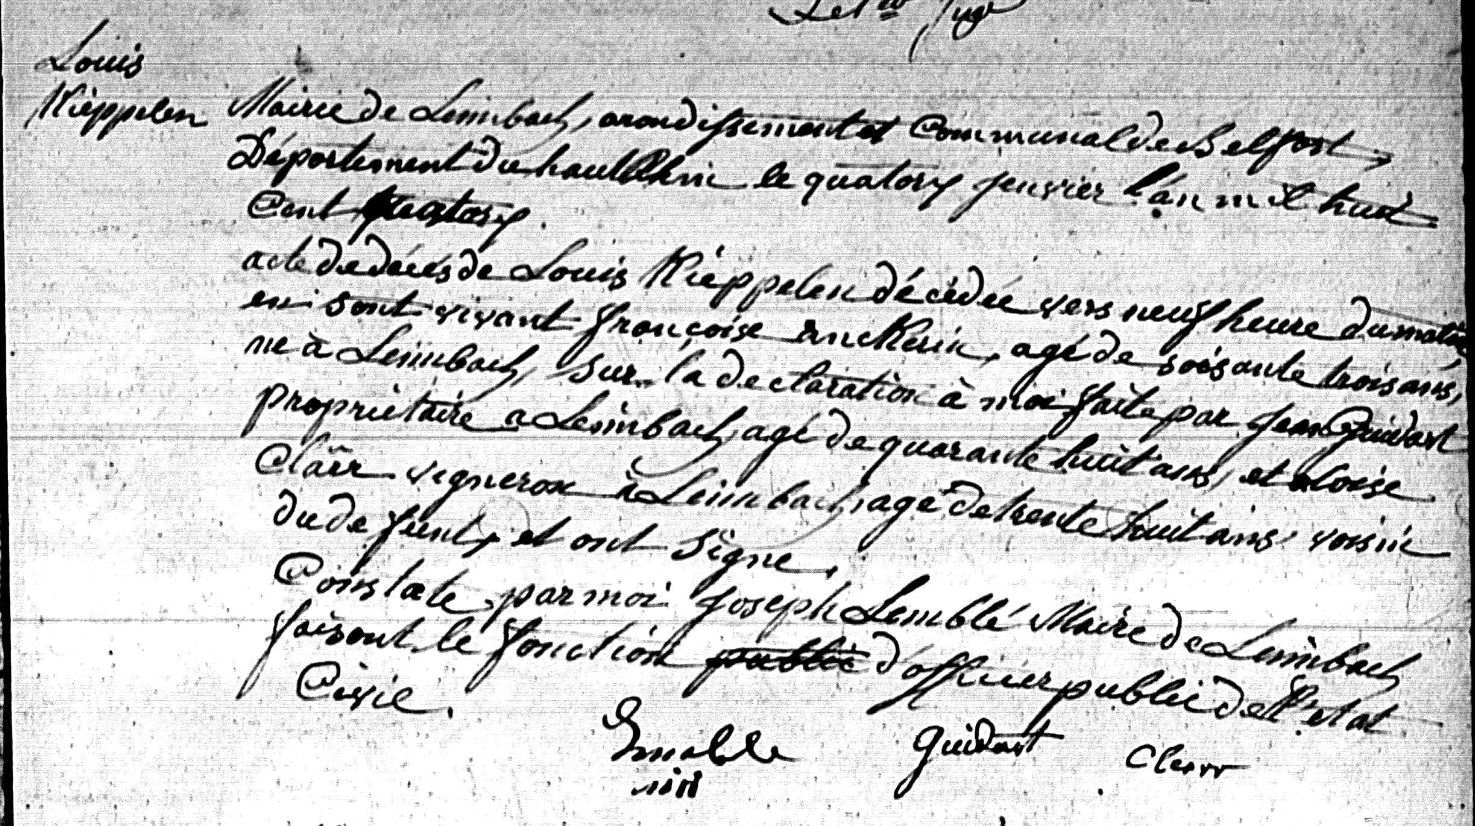 Louis
Kièppelen
Mairie de Leimbach, arondissement Communal de Belfort,
Département du haut Rhin le quatorz jenvier l'an mil huit
Cent quatorz.
acte de décés de Louis Kièppelen décédée vers neuf heure du matin,
en sont vivant françoise anckerin, agé de soisante trois ans,
ne à Leimbach, sur la declaration à moi faite par Jean Guidart
propriètaire a Leimbach, agé de quarante huit ans, et aloise
Clärr vigneron à Leimbach, agé de trente huit ans, voisin
du defunt, et ont signe.
Constate par moi Joseph Lemblé Maire de Leimbach
faisont le fonction public d'officier public de l'etat
Civie.
Guidart
Clerr